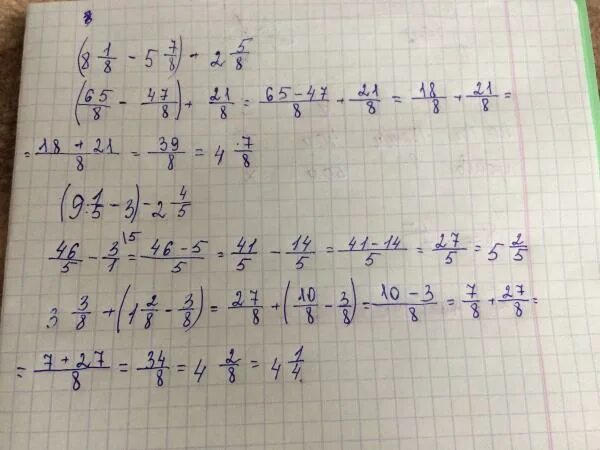 8
(8 1/8 - 5 7/8) + 2 5/8
(65/8 - 47/8) + 21/8 = (65-47)/8 + 21/8 = 18/8 + 21/8 =
= (18+21)/8 = 39/8 = 4 7/8
(9 1/5 - 3) - 2 4/5
46/5 - 3/1 \5 = (46-5)/5 = 41/5 - 14/5 = (41-14)/5 = 27/5 = 5 2/5
3 3/8 + (1 2/8 - 3/8) = 27/8 + (10/8 - 3/8) = (10-3)/8 = 7/8 + 27/8 =
= (7+27)/8 = 34/8 = 4 2/8 = 4 1/4.